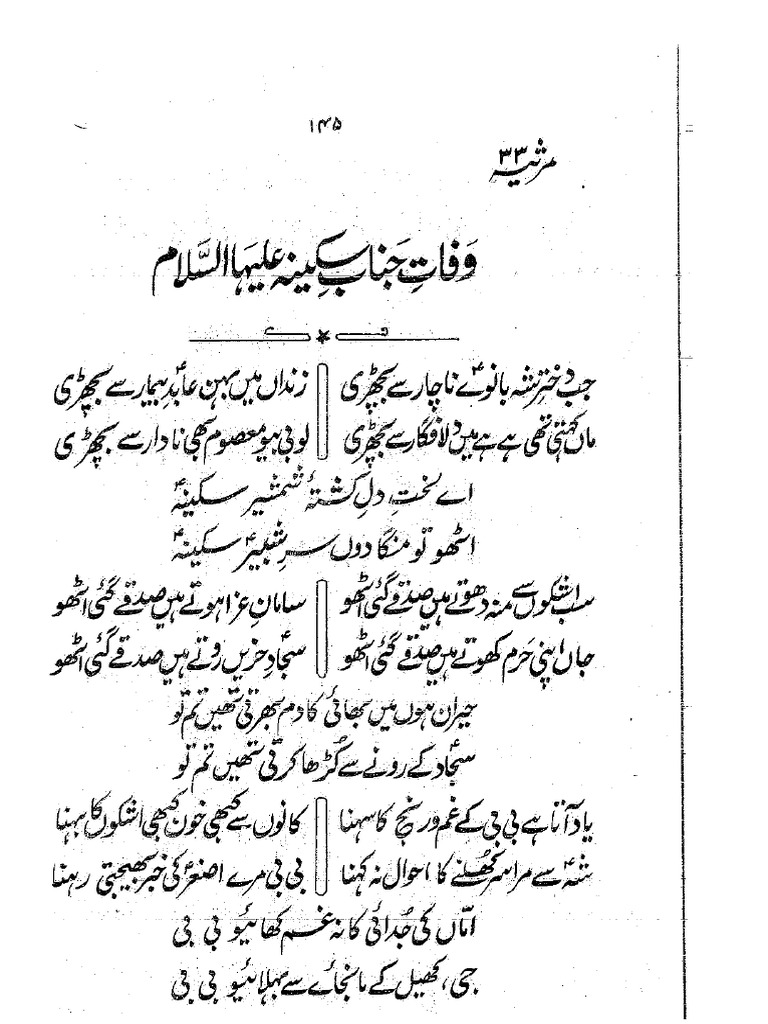 ۱۴۵
مرثیہ ۳۳
وَفاتِ جَنابِ سکینہ علیہَا السَّلام
جب دُخترِ شہ بانوئے ناچار سے بچھڑی زنداں میں بہن عابدِ بیمار سے بچھڑی
ماں کہتی تھی ہے ہے میں دل افگار سے بچھڑی لو بی بیو معصوم بھی نادار سے بچھڑی
اے لختِ دلِ کشتۂ شمشیر سکینہؑ
اٹھو تو منگا دوں سرِ شبیرؑ سکینہؑ
سب اشکوں سے منہ دھوتے ہیں صدقے گئی اٹھو سامانِ عزا ہوتے ہیں صدقے گئی اٹھو
جاں اپنی حَرم کھوتے ہیں صدقے گئی اٹھو سجادِ حزیں روتے ہیں صدقے گئی اٹھو
حیران ہوں میں بھائی کا دم بھرتی تھیں تم تو
سجادؑ کے رونے سے کُڑھا کرتی تھیں تم تو
یاد آتا ہے بی بی کے غم و رنج کا سہنا کانوں سے کبھی خون کبھی اشکوں کا بہنا
شہؑ سے مرا سر کھُلنے کا احوال نہ کہنا بی بی مرے اصغرؑ کی خبر بھیجتی رہنا
امّاں کی جُدائی کا نہ غم کھائیو بی بی
جی، کھیل کے مانجائے سے بہلائیو بی بی